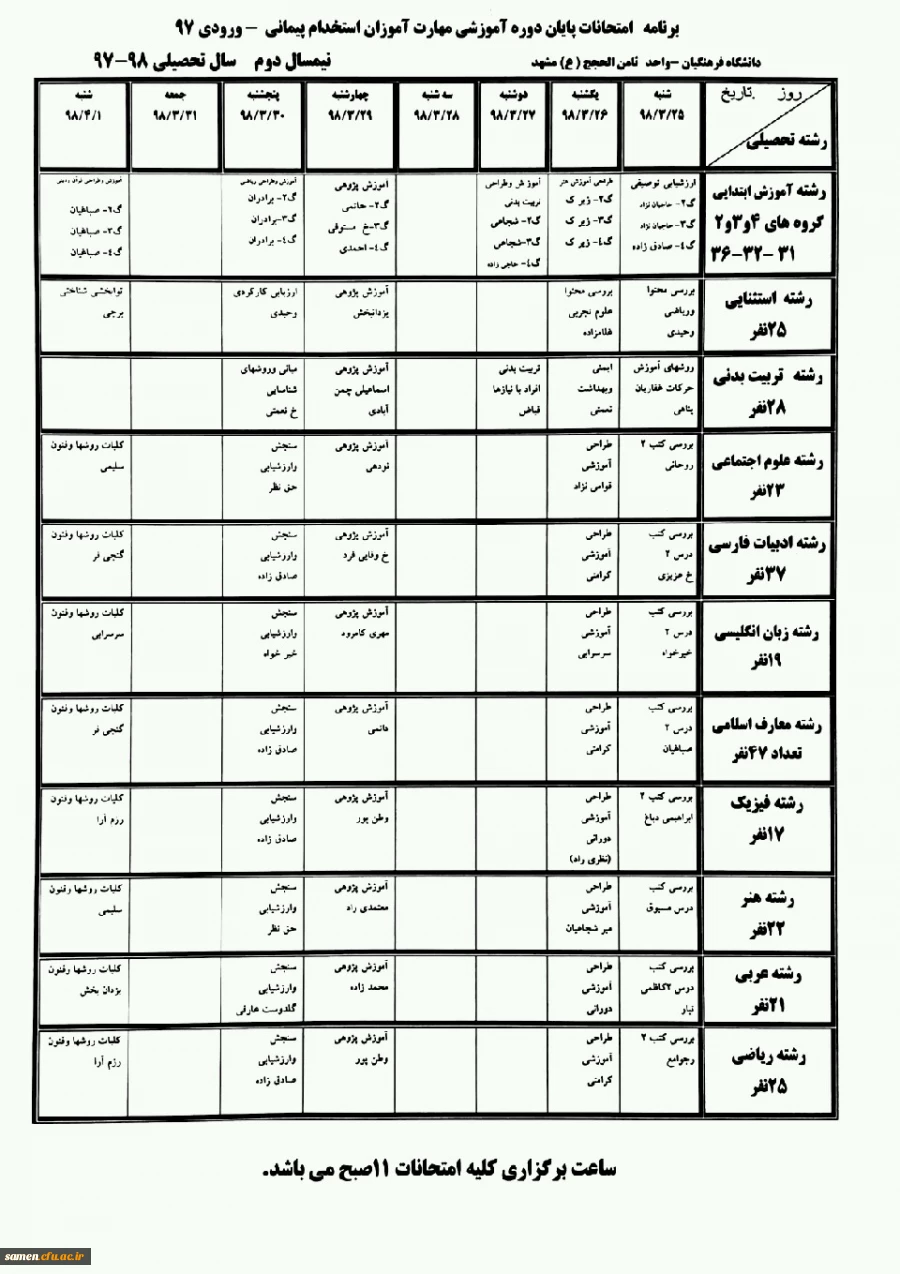 برنامه امتحانات پایان دوره آموزشی مهارت آموزان استخدام پیمانی - ورودی ۹۷
دانشگاه فرهنگیان -واحد ثامن الحجج (ع) مشهد نیمسال دوم سال تحصیلی ۹۸-۹۷
روز .تاریخ
رشته تحصیلی
شنبه
۹۸/۳/۲۵
یکشنبه
۹۸/۳/۲۶
دوشنبه
۹۸/۳/۲۷
سه شنبه
۹۸/۳/۲۸
چهارشنبه
۹۸/۳/۲۹
پنجشنبه
۹۸/۳/۳۰
جمعه
۹۸/۳/۳۱
شنبه
۹۸/۴/۱
رشته آموزش ابتدایی
گروه های ۴و۳و۲
۳۱ -۳۲-۳۶
ارزشیابی توصیفی
گ۲- حاجیان نژاد
گ۳- حاجیان نژاد
گ٤- صادق زاده
طراحی آموزش هنر
گ۲- زیر ک
گ۳- زیر ک
گ٤- زیر ک
آموز ش وطراحی
تربیت بدنی
گ۲- شجاعی
گ۳-شجاعی
گ٤- حاجی زاده
آموزش پژوهی
گ۲- حاتمی
گ۳-خ مستوفی
گ٤- احمدی
آموزش وطراحی ریاضی
گ۲- برادران
گ۳-برادران
گ٤- برادران
آموزش وطراحی قرآن ودینی
گ۲- صباغیان
گ۳- صباغیان
گ٤- صباغیان
رشته استثنایی
۲۵نفر
بررسی محتوا
وریاضی
وحیدی
بررسی محتوا
علوم تجربی
غلامزاده
آموزش پژوهی
یزدانبخش
ارزیابی کارکردی
وحیدی
توانبخشی شناختی
برجی
رشته تربیت بدنی
۲۸نفر
روشهای آموزش
حرکات غفاریان
پناهی
ایمنی
وبهداشت
نعمتی
تربیت بدنی
افراد با نیازها
فیاض
آموزش پژوهی
اسماعیلی چمن
آبادی
مبانی وروشهای
شناسایی
خ نعمتی
رشته علوم اجتماعی
۲۳نفر
بررسی کتب ۲
روحانی
طراحی
آموزشی
قوامی نژاد
آموزش پژوهی
نودهی
سنجش
وارزشیابی
حق نظر
کلیات روشها وفنون
سلیمی
رشته ادبیات فارسی
۳۷نفر
بررسی کتب
درس ۲
خ عزیزی
طراحی
آموزشی
کرامتی
آموزش پژوهی
خ وفایی فرد
سنجش
وارزشیابی
صادق زاده
کلیات روشها وفنون
گنجی فر
رشته زبان انگلیسی
۱۹نفر
بررسی کتب
درس ۲
خیرخواه
طراحی
آموزشی
سرسرابی
آموزش پژوهی
مهری کامرود
سنجش
وارزشیابی
خیر خواه
کلیات روشها وفنون
سرسرابی
رشته معارف اسلامی
تعداد ۴۷نفر
بررسی کتب
درس ۲
صباغیان
طراحی
آموزشی
کرامتی
آموزش پژوهی
هاتمی
سنجش
وارزشیابی
صادق زاده
کلیات روشها وفنون
گنجی فر
رشته فیزیک
۱۷نفر
بررسی کتب ۲
ابراهیمی دباغ
طراحی
آموزشی
دورانی
(نظری راد)
آموزش پژوهی
وطن پور
سنجش
وارزشیابی
صادق زاده
کلیات روشها وفنون
رزم آرا
رشته هنر
۲۲نفر
بررسی کتب
درس مسبوق
طراحی
آموزشی
میر شجاعیان
آموزش پژوهی
معتمدی راد
سنجش
وارزشیابی
حق نظر
کلیات روشها وفنون
سلیمی
رشته عربی
۲۱نفر
بررسی کتب
درس ۲کاظمی
تبار
طراحی
آموزشی
دورانی
آموزش پژوهی
محمد زاده
سنجش
وارزشیابی
گلدوست عارفی
کلیات روشها وفنون
یزدان بخش
رشته ریاضی
۲۵نفر
بررسی کتب ۲
رجوامع
طراحی
آموزشی
کرامتی
آموزش پژوهی
وطن پور
سنجش
وارزشیابی
صادق زاده
کلیات روشها وفنون
رزم آرا
ساعت برگزاری کلیه امتحانات ۱۱صبح می باشد.
samen.cfu.ac.ir